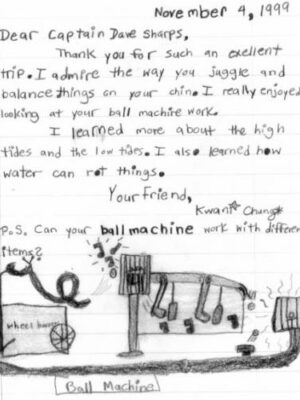 November 4, 1999
Dear Captain Dave Sharps,
Thank you for such an exellent
trip. I admire the way you juggle and
balance things on your chin. I really enjoyed
looking at your ball machine work.
I learned more about the high
tides and the low tides. I also learned how
water can rot things.
Your friend,
Kwani Chung
P.S. Can your ball machine work with different
items?
wheel barrow
Ball Machine